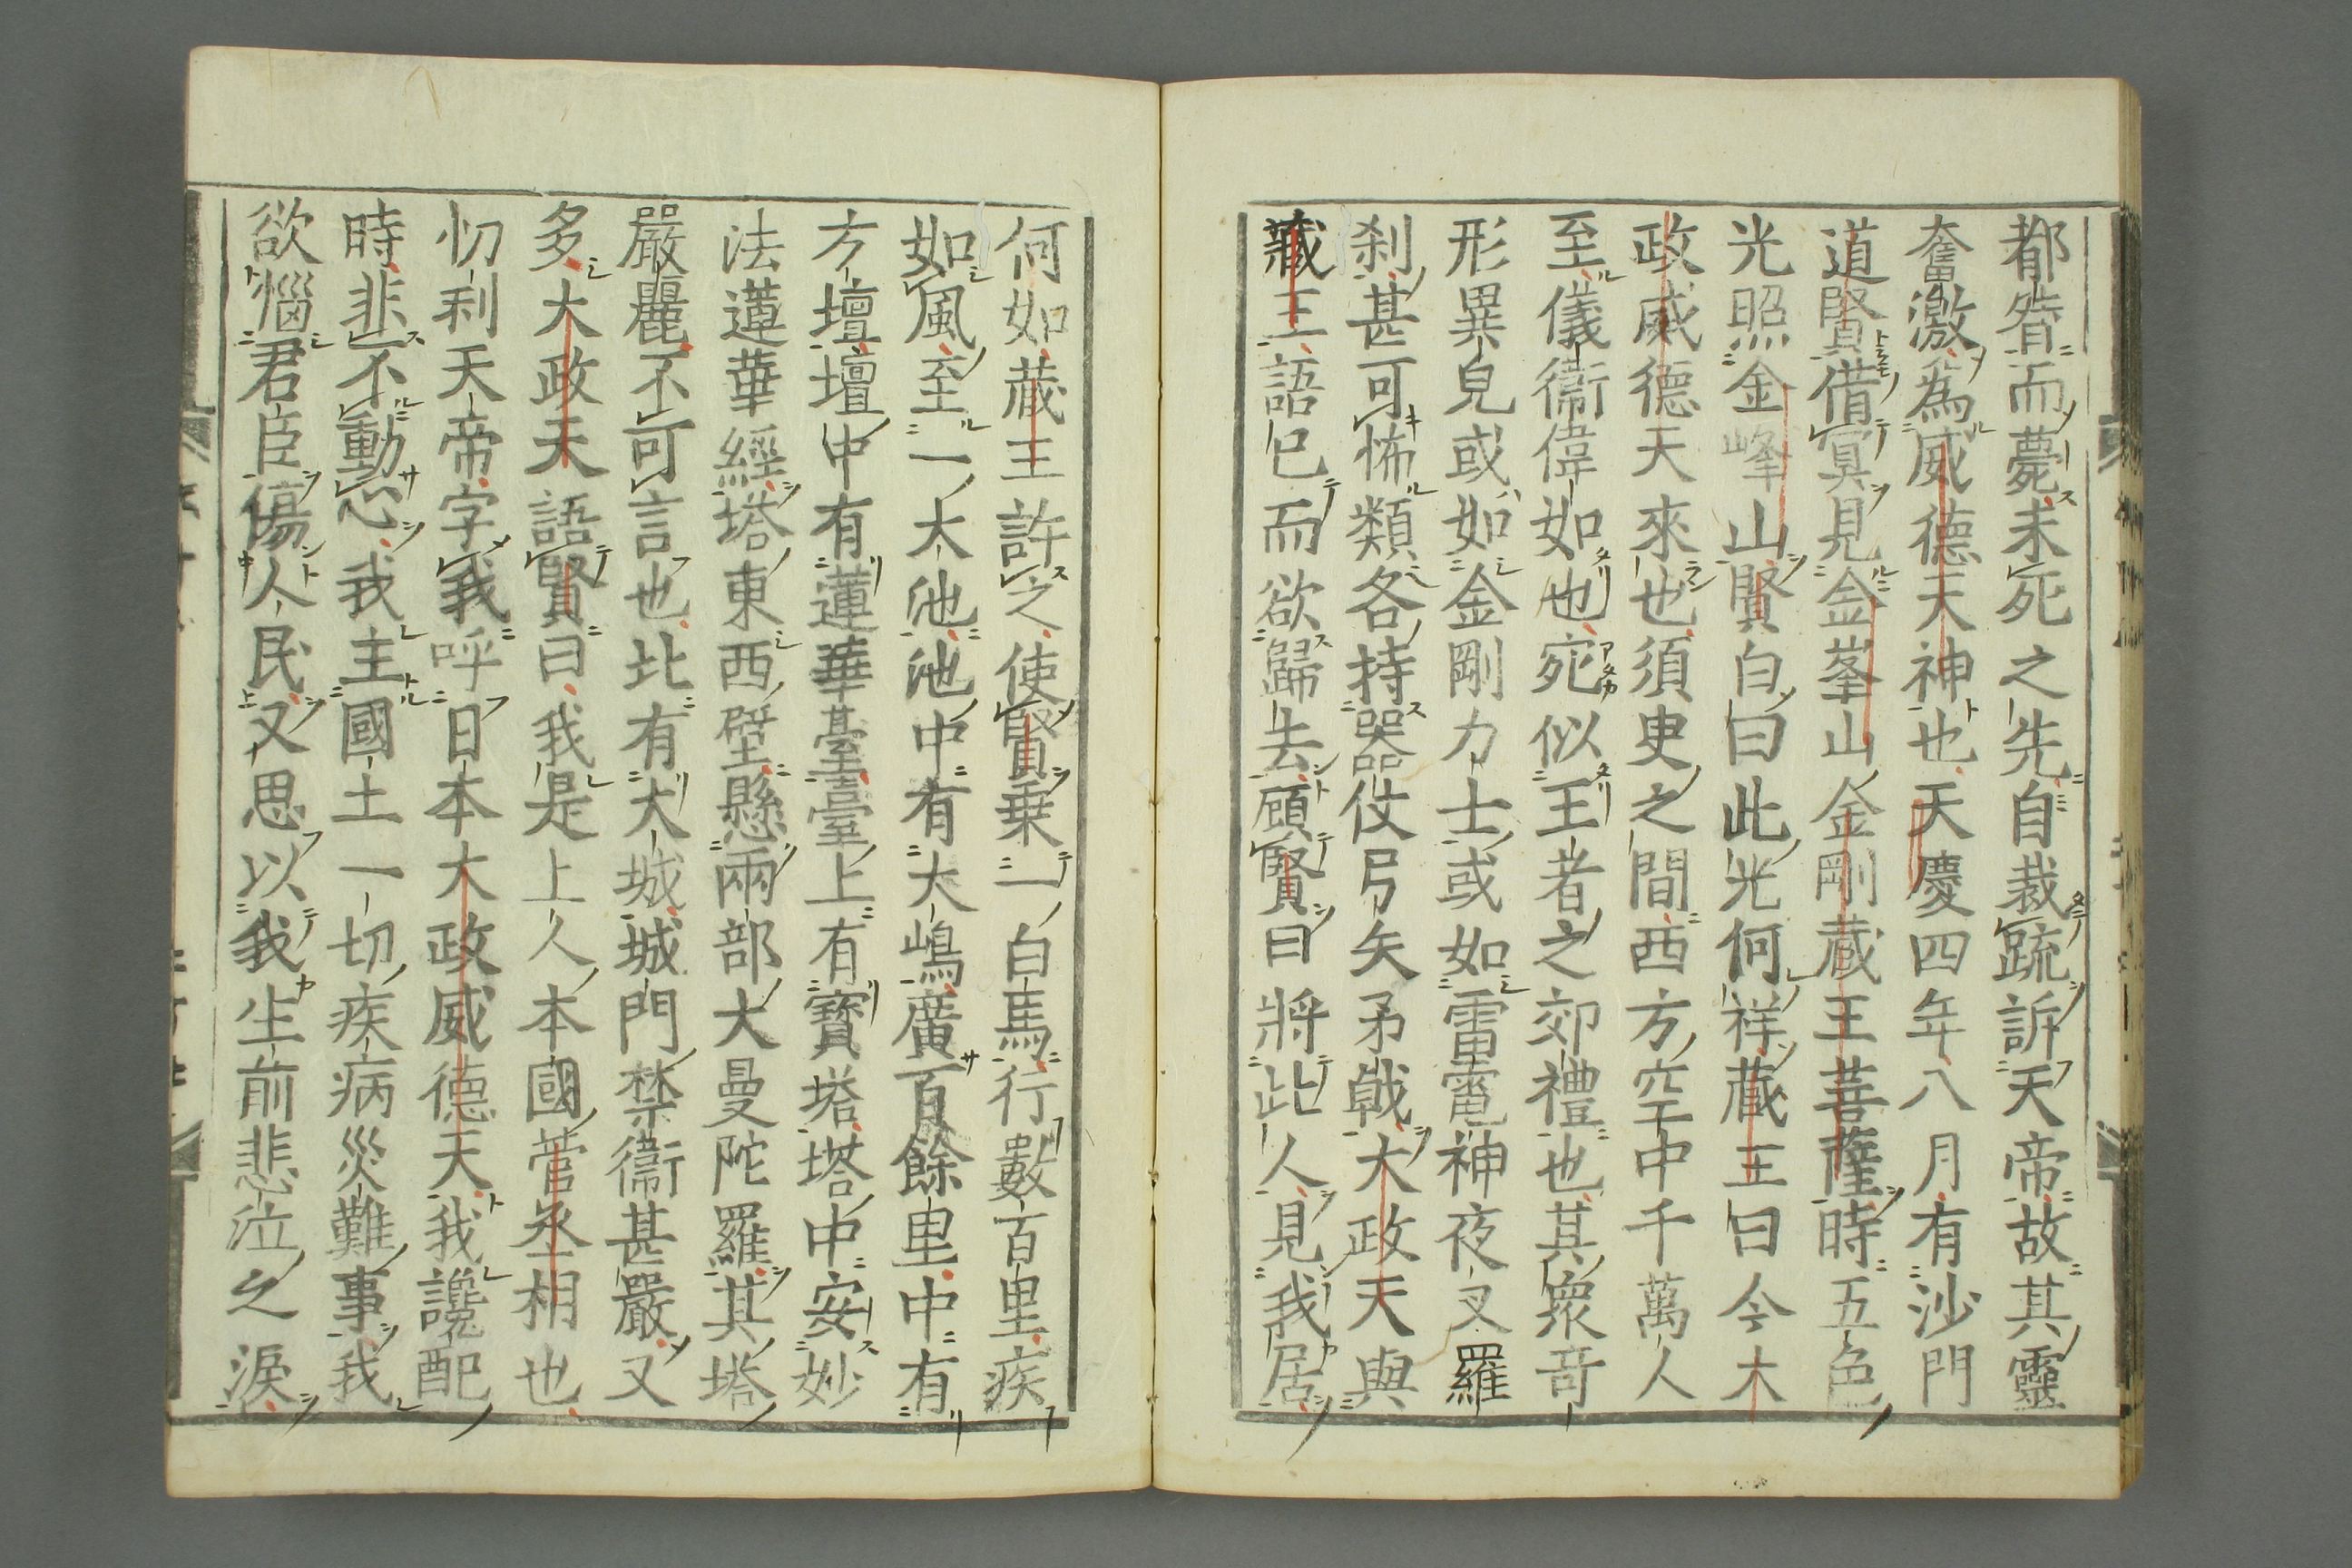 都督而薨未死之先自裁䟽訴天帝故其靈
奮激為威德天神也天慶四年八月有沙門
道賢借冥見金峯山金剛蔵王菩薩時五色
光照金峰山賢白曰此光何祥蔵王曰今大
政威德天來也須臾之間西方空中千萬人
至儀衛偉如也宛似王者之郊禮也其衆竒
形異皃或如金剛力士或如雷電神夜叉羅
刹甚可怖類各持器仗弓矢矛戟大政天與
蔵王語已而欲歸去顧賢曰將此人見我居
何如蔵王許之使賢乗一白馬行數百里疾
如風至一大池池中有大嶋廣百餘里中有
方壇壇中有蓮華臺臺上有寳塔塔中安妙
法蓮華經塔東西壁懸兩部大曼陀羅其塔
嚴麗不可言也北有大城城門禁衛甚嚴又
多大政天語賢曰我是上人本國菅丞相也
忉利天帝字我呼日本大政威德天我讒配
時悲不動心我主國土一切疾病災難事我
欲惱君臣傷人民又思以我生前悲泣之淚